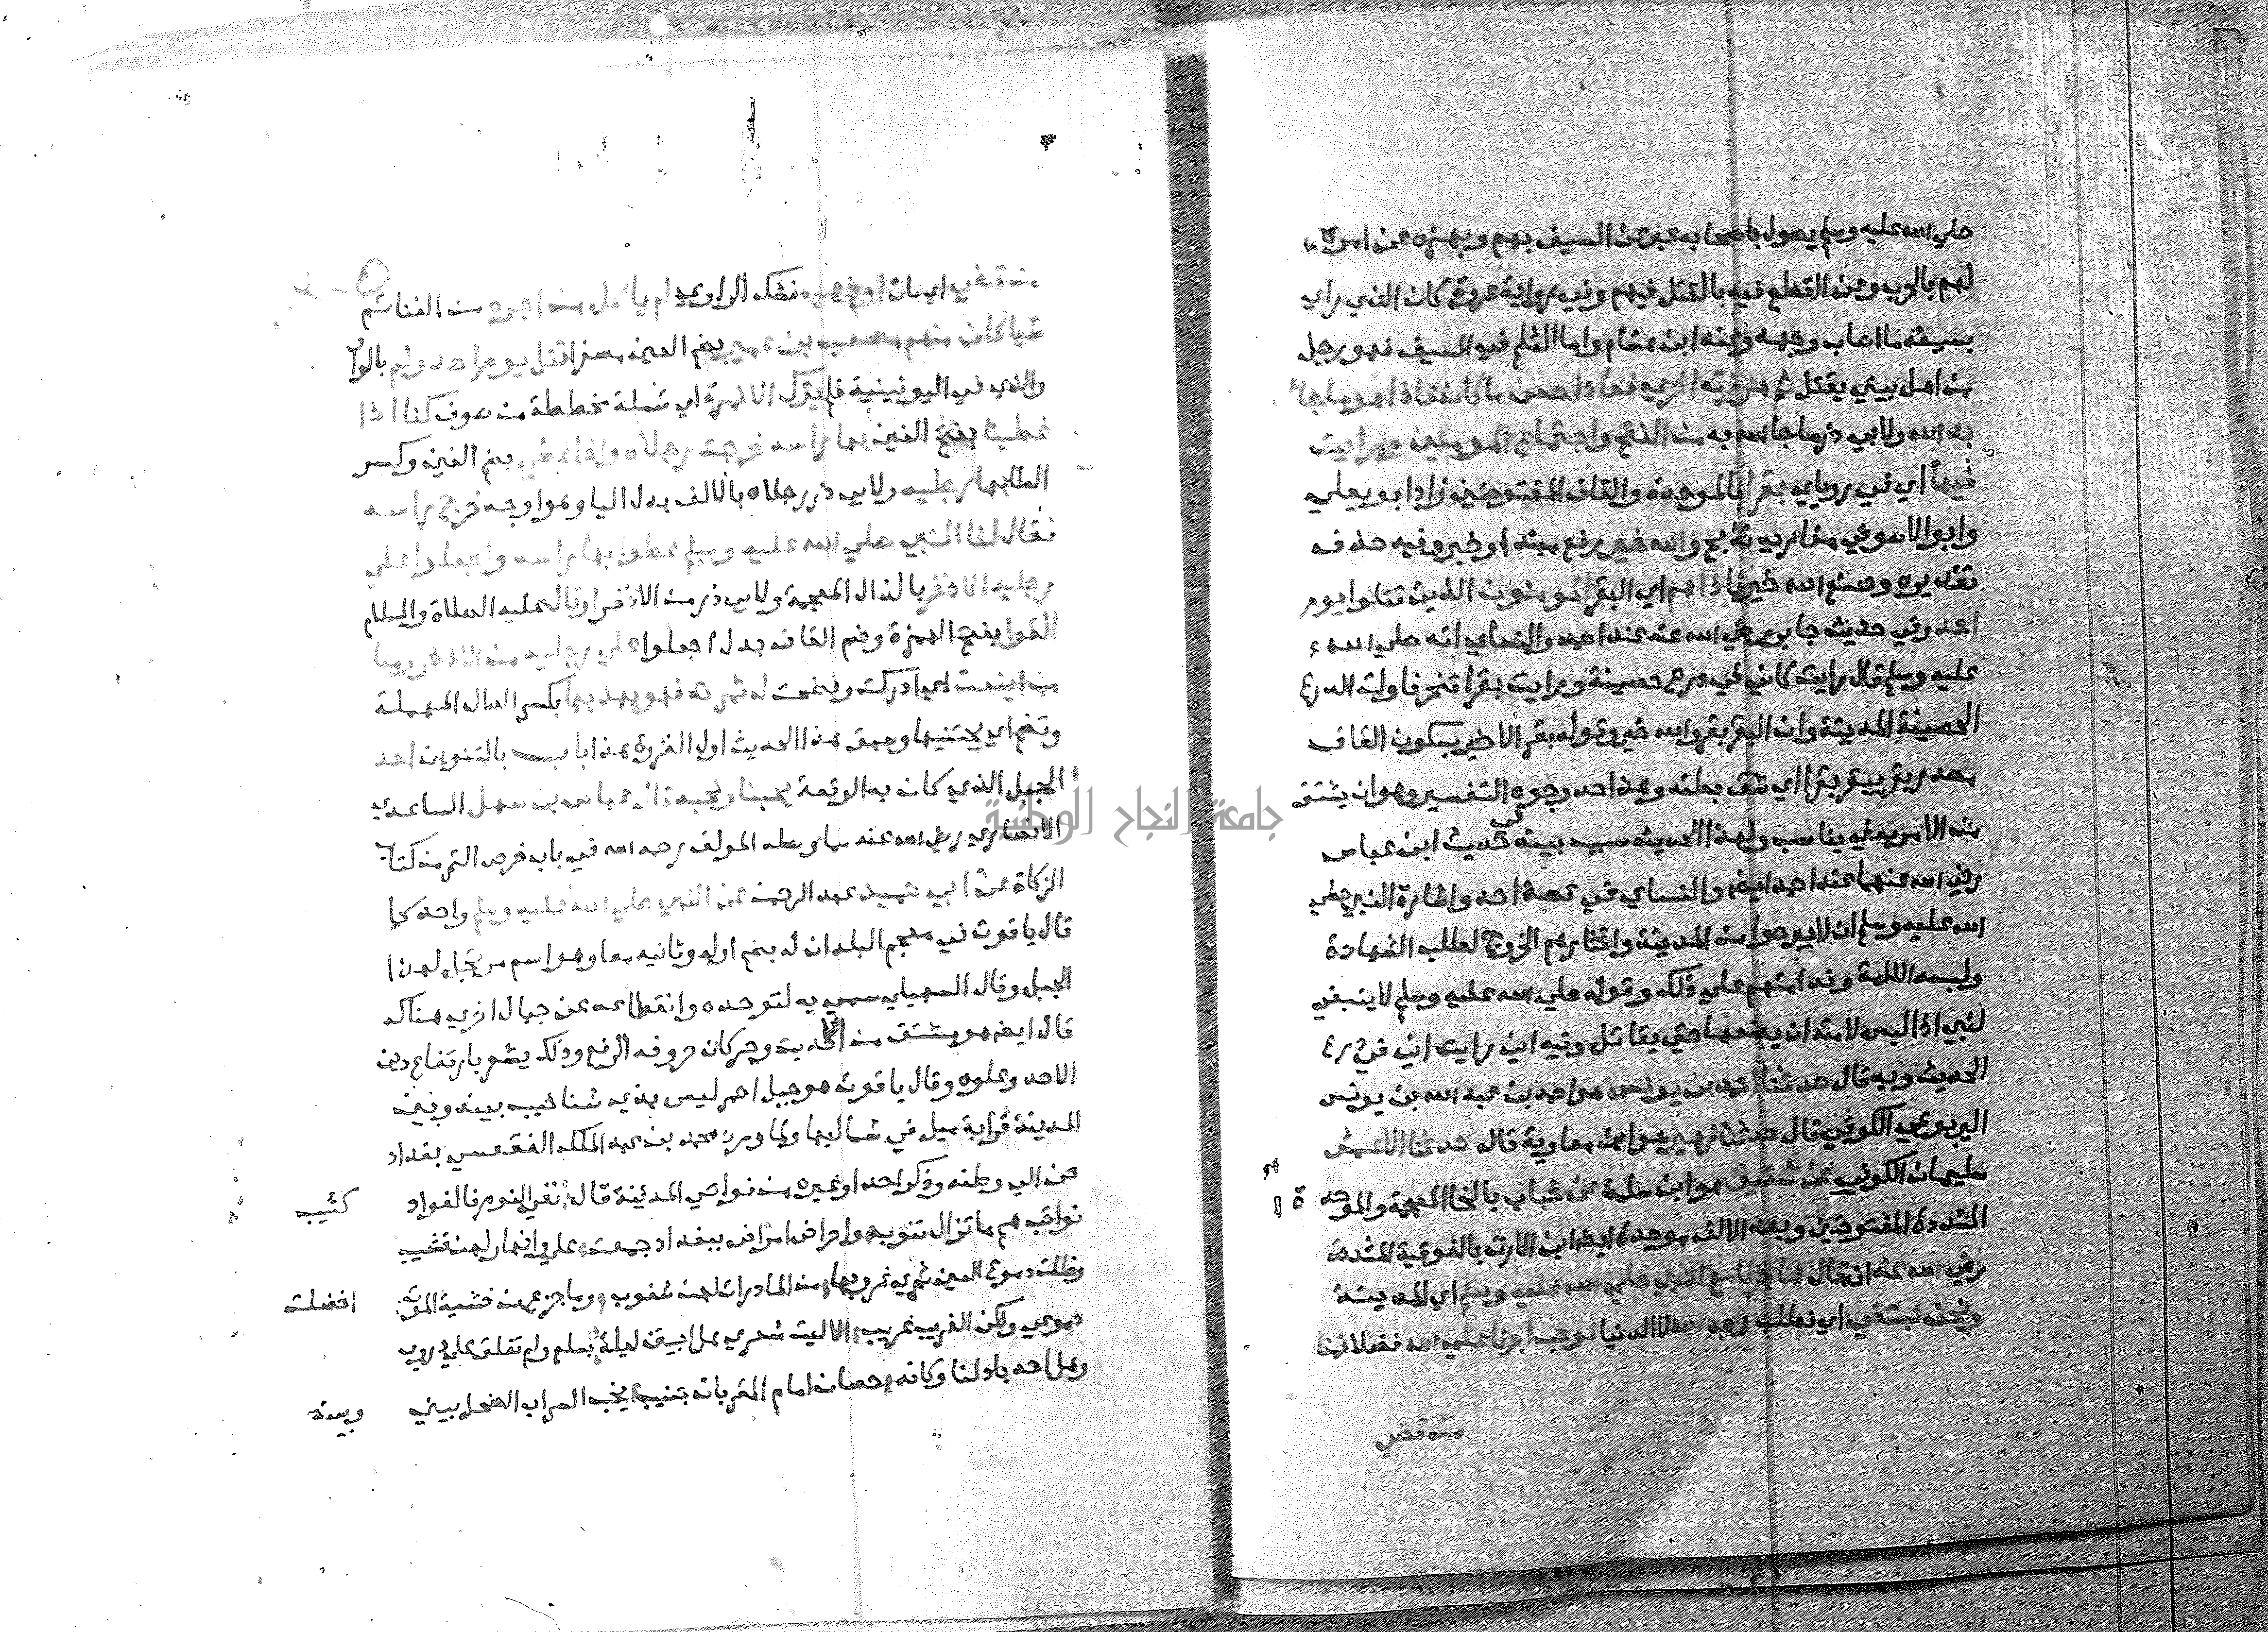 صلي الله عليه وسلم يصول باصحابه عبر عن السيف بهم وبهزه عن امره
لهم بالحرب وعن القطع فيه بالقتل فيهم وفي رواية عروة كان الذي راي
بسيفه ما اصاب وجهه وعند ابن هشام واما الثلم في السيف فهو رجل
من اهل بيتي يقتل ثم هززته اخري فعاد احسن ما كان فاذا هو ما جا
به الله ولابي ذر ما جا الله به من الفتح واجتماع المومنين ورايت
فيها اي في روياي بقرا بالموحدة والقاف المفتوحتين زاد ابو يعلي
وابو الاسود في مغازيه تذبح والله خير برفع مبتدا وخبر وفيه حذف
تقديره وصنع الله خير فاذا هم اي البقر المومنون الذين قتلوا يوم
احد وفي حديث جابر رضي الله عنه عند احمد والنساي انه صلي الله
عليه وسلم قال رايت كاني في درع حصينة ورايت بقرا تنحر فاولت الدرع
الحصينة المدينة وان البقر بقر والله خير وقوله بقر الاخير بسكون القاف
مصدر بقر يبقر بقرا اي شق بطنه وهذا احد وجوه التفسير وهو ان يشتق
من الامر معني يناسب ولهذا الحديث سبب بينه في حديث ابن عباس
رضي الله عنهما عند احمد ايضا والنساي في قصة احد واشارة النبي صلي
الله عليه وسلم ان لا يبرحوا من المدينة وايثارهم الخروج لطلب الشهادة
ولبسه اللامة وندامتهم علي ذلك وقوله صلي الله عليه وسلم لا ينبغي
لنبي اذا لبس لامته ان يضعها حتي يقاتل وفيه اني رايت اني في درع
الحديث وبه قال حدثنا احمد بن يونس هو احمد بن عبد الله بن يونس
اليربوعي الكوفي قال حدثنا زهير هو ابن معاوية قال حدثنا الاعمش
سليمان الكوفي عن شقيق هو ابن سلمة عن خباب بالخا المعجمة والموحدة
المشددة المفتوحتين وبعد الالف موحدة ايضا ابن الارت بالفوقية المشددة
رضي الله عنه انه قال هاجرنا مع النبي صلي الله عليه وسلم اي المدينة
ونحن نبتغي اي نطلب وجه الله لا الدنيا فوجب اجرنا علي الله فضلا فمنا
من قضي
من قضي اي مات او ذهب فشك الراوي لم ياكل من اجره من الغنائم
شيا كان منهم مصعب بن عمير بضم العين مصغرا قتل يوم احد ولم بالواو
والذي في اليونينية فلم يترك الا نمرة اي شملة مخططة من صوف كنا اذا
غطينا بفتح الغين بها راسه خرجت رجلاه واذا غطي بضم الغين وكسر
الطا بها رجليه ولابي ذر رجلاه بالالف بدل اليا وهو اوجه خرج راسه
فقال لنا النبي صلي الله عليه وسلم غطوا بها راسه واجعلوا علي
رجليه الاذخر بالذال المعجمة ولابي ذر من الاذخر او قال عليه الصلاة والسلام
القوا بفتح الهمزة وضم القاف بدل اجعلوا علي رجليه من الاذخر ومنا
من اينعت اي ادركت ونضجت له ثمرته فهو يهدبها بكسر الدال المهملة
وتضم اي يجتنيها وسبق هذا الحديث اول الغزوة هذا باب بالتنوين احد
الجبل الذي كان به الوقعة يحبنا ونحبه قال عباس بن سهل الساعدي
الانصاري رضي الله عنه مما وصله المولف رحمه الله في باب خرص التمر من كتاب
الزكاة عن ابي حميد عبد الرحمن عن النبي صلي الله عليه وسلم واحد كما
قال ياقوت في معجم البلدان له بضم اوله وثانيه معا وهو اسم مرتجل لهذا
الجبل وقال السهيلي سمي به لتوحده وانقطاعه عن جبال اخري هناك
قال ايضا هو مشتق من الاحدية وحركات حروفه الرفع وذلك يشعر بارتفاع دين
الاحد وعلوه وقال ياقوت هو جبل احمر ليس بذي شناخيب بينه وبين
المدينة قرابة ميل في شماليها ولما ورد محمد بن عبد الملك الفقعسي بغداد
حن الي وطنه وذكر احدا وغيره من نواحي المدينة قال نفي النوم فالفواد كئيب
نوائب هم ما تزال تنوبه واحراض امراض ببغداد جمعت علي وانهار لهن قشيب
وظلت دموع العين تمري غروبها من الما درات لهن شعوب وما جزع من خشية الموت اخضلت
دموعي ولكن الغريب غريب الا ليت شعري هل ابيتن ليلة بسلع ولم تغلق علي دروب
وهل احد باد لنا وكانه حصان امام المقربات جنيب يخب السراب الضحل بيني وبينه
جامعة النجاح الوطنية